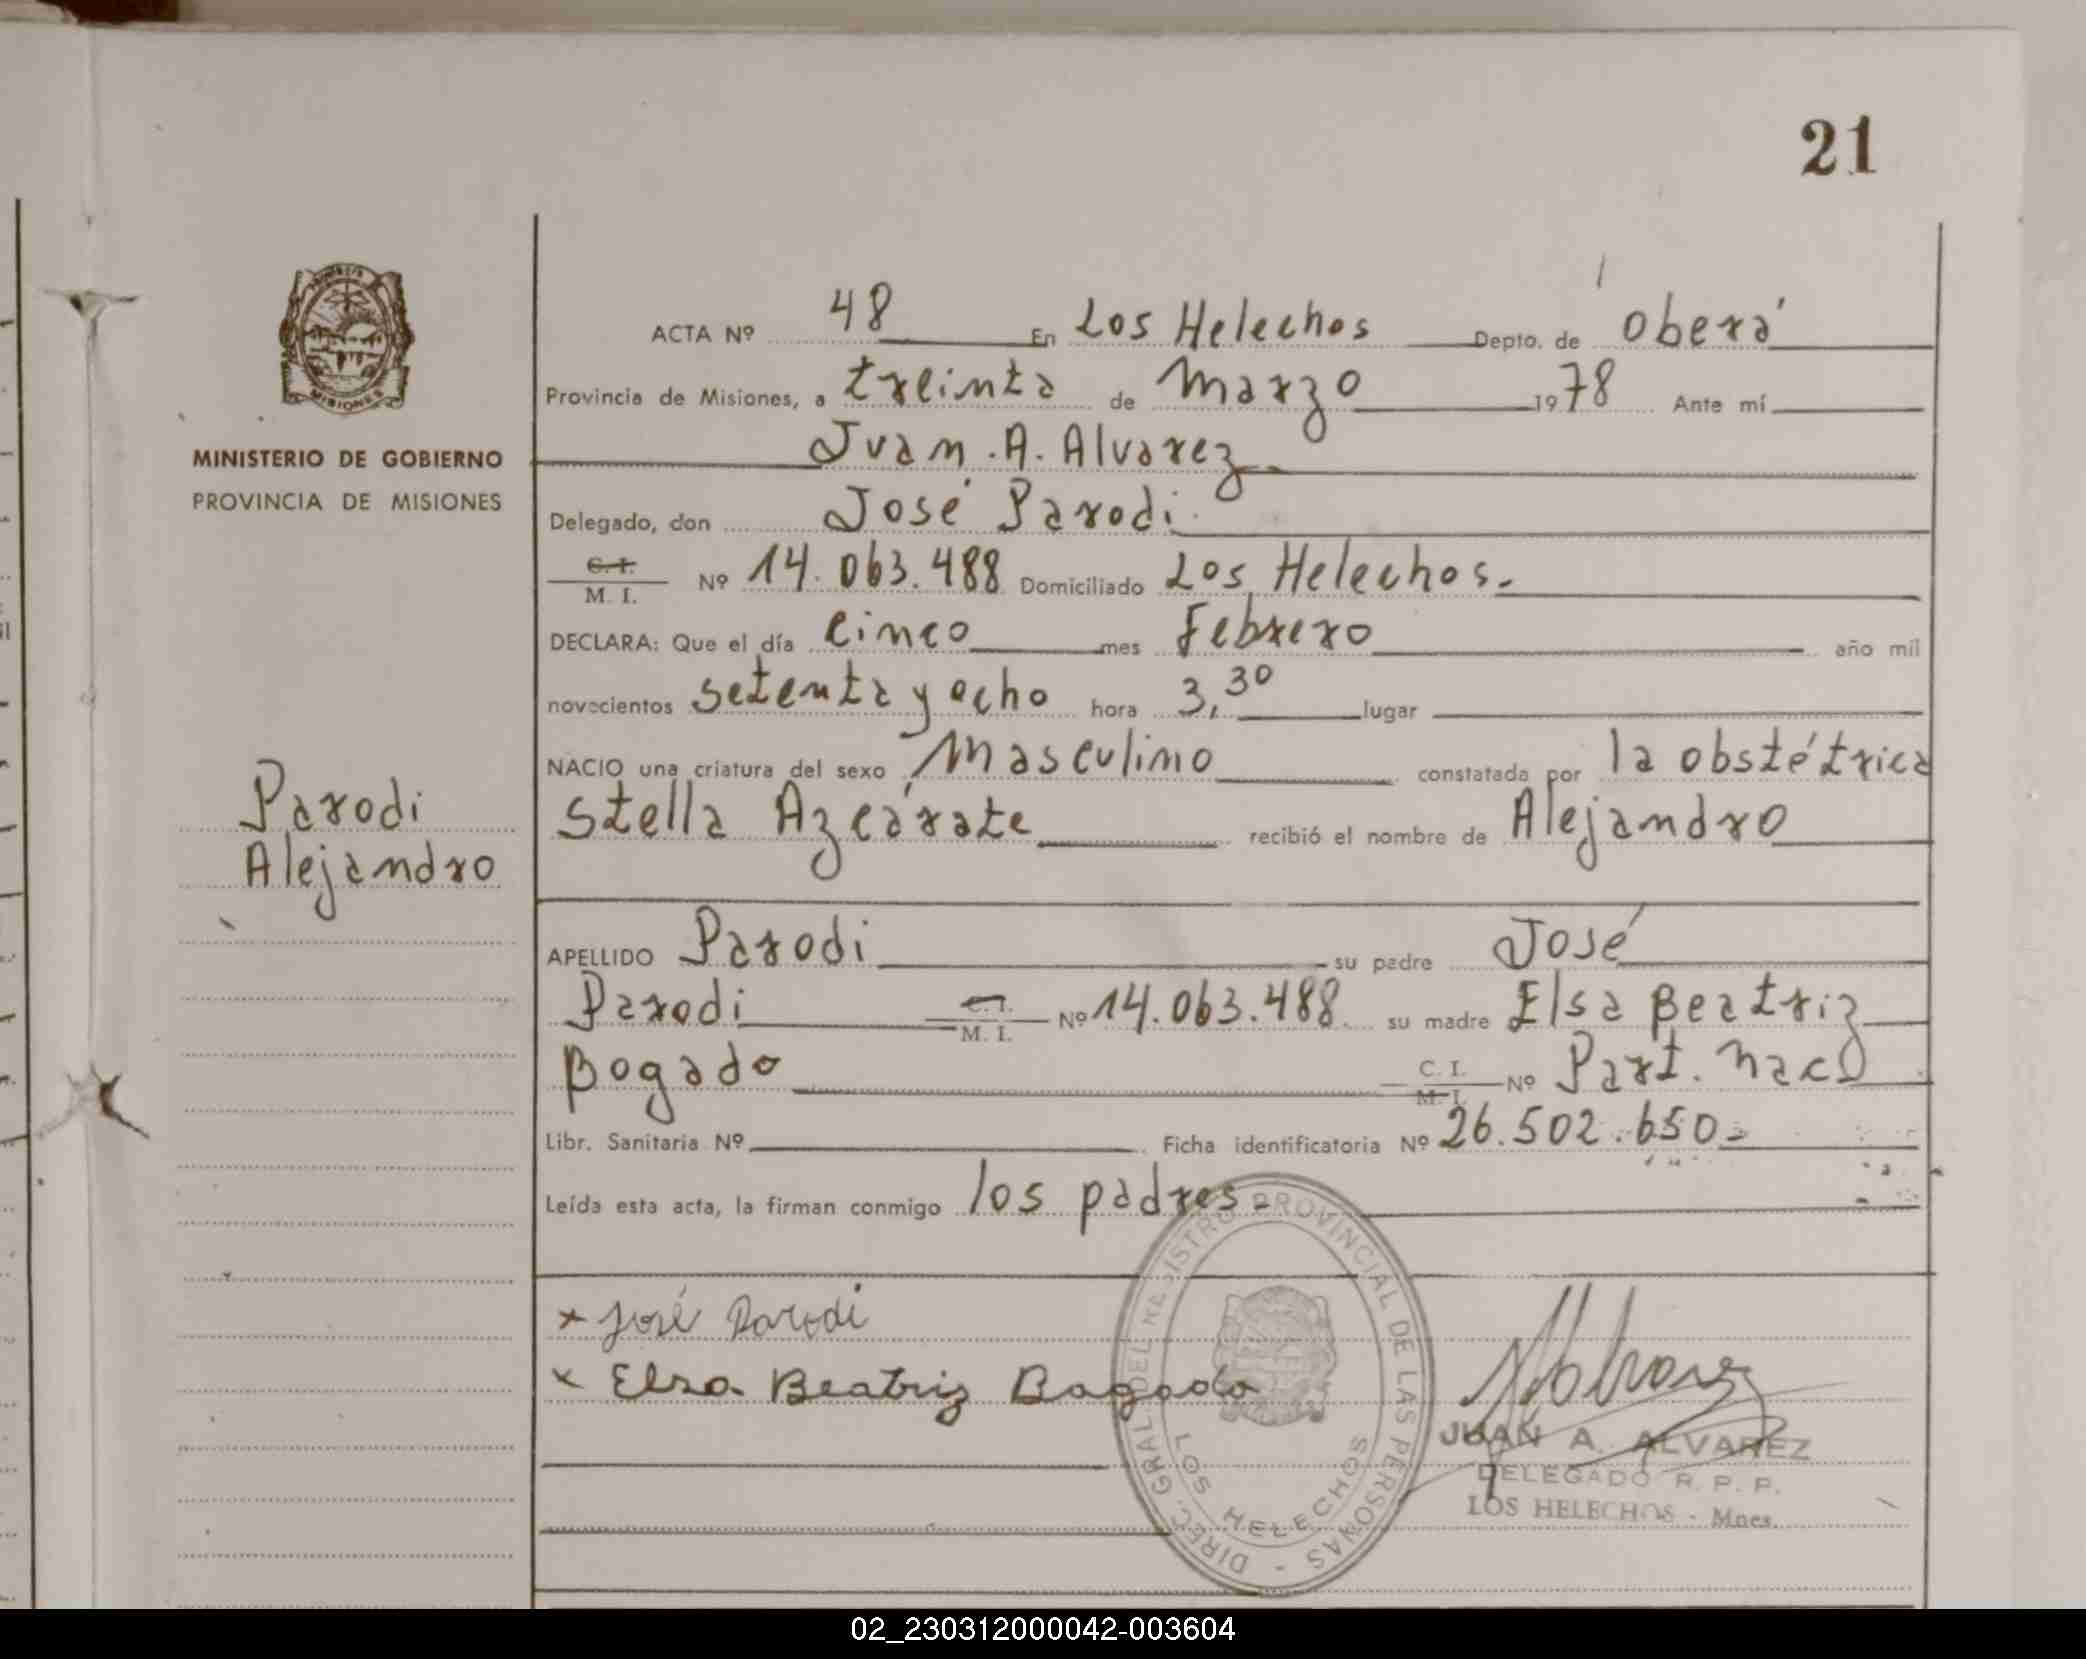 21
MINISTERIO DE GOBIERNO
PROVINCIA DE MISIONES
MISIONES
Parodi
Alejandro
ACTA Nº 48 En Los Helechos Depto. de Oberá
Provincia de Misiones, a treinta de Marzo 1978 Ante mí
Juan A. Alvarez
Delegado, don José Parodi
C. I. M. I. Nº 14.063.488 Domiciliado Los Helechos.
DECLARA: Que el día cinco mes Febrero año mil
novecientos setenta y ocho hora 3,30 lugar
NACIO una criatura del sexo Masculino constatada por la obstétrica
Stella Azcárate recibió el nombre de Alejandro
APELLIDO Parodi su padre José
Parodi C. I. M. I. Nº 14.063.488 su madre Elsa Beatriz
Bogado C. I. M. I. Nº Part. Nac
Libr. Sanitaria Nº Ficha identificatoria Nº 26.502.650-
Leída esta acta, la firman conmigo los padres-
x José Parodi
x Elsa Beatriz Bogado
DIREC. GRAL. DEL REGISTRO PROVINCIAL DE LAS PERSONAS -
LOS HELECHOS
JUAN A. ALVAREZ
DELEGADO R. P. P.
LOS HELECHOS - Mnes.
02_230312000042-003604